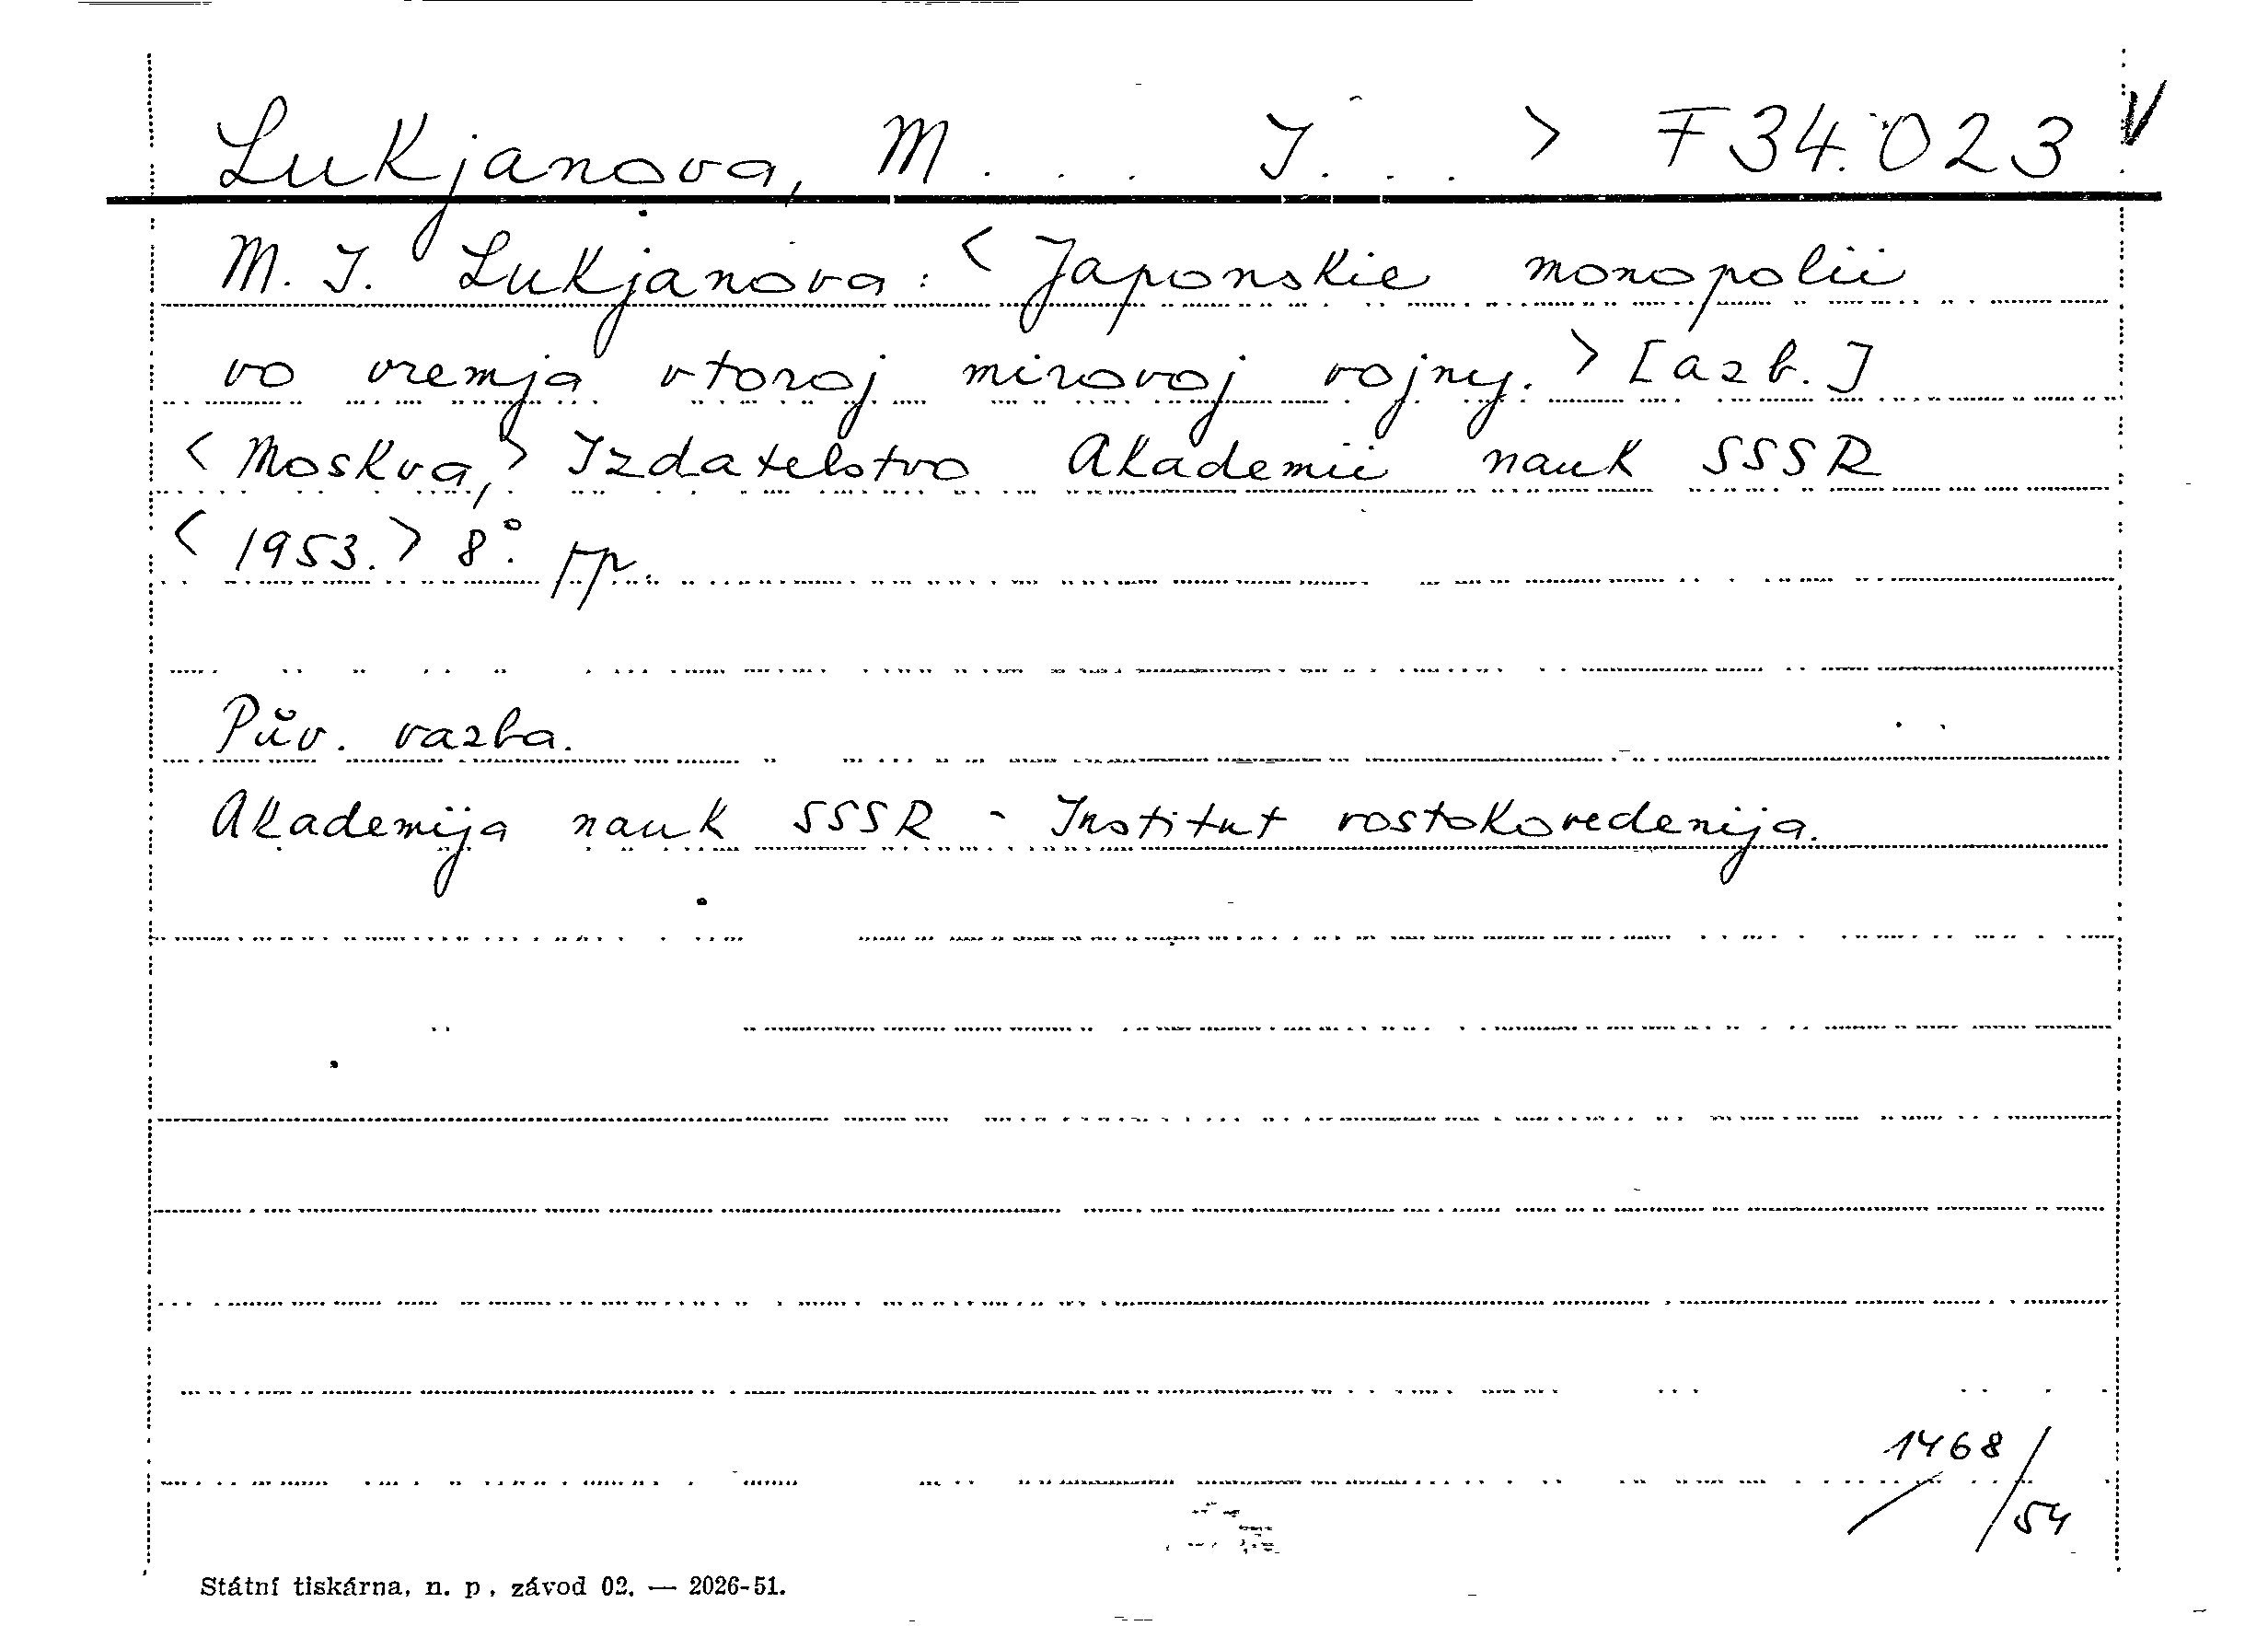 Lukjanova, M . . . I. . . > F 34.023 V
M. I. Lukjanova: < Japonskie monopolii
vo vremja vtoroj mirovoj vojny. > [azb.]
< Moskva, > Izdatelstvo Akademii nauk SSSR
< 1953. > 8°. pp.
Pův. vazba.
Akademija nauk SSSR - Institut vostokovedenija.
1468/54
Státní tiskárna, n. p., závod 02. — 2026-51.